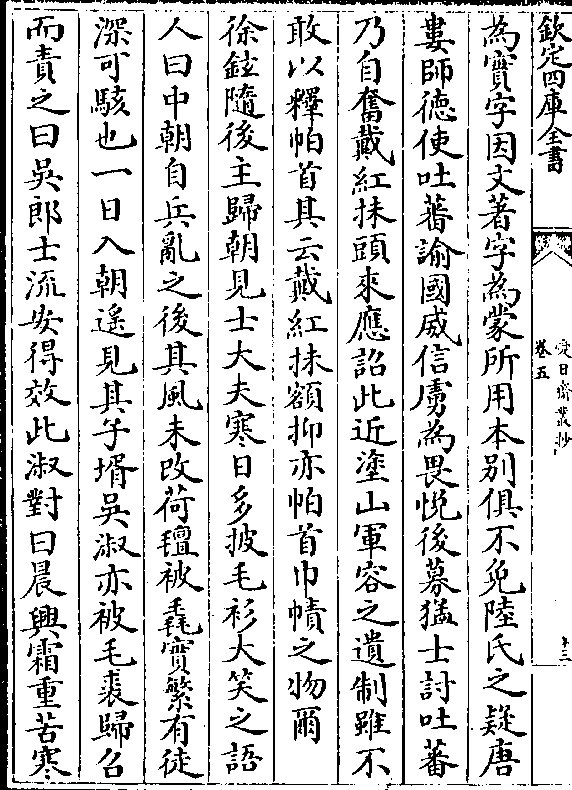 欽定四庫全書
愛日齋叢抄
卷五
十三
為寳字因文著字為蒙所用本别俱不免陸氏之疑唐
婁師徳使吐蕃諭國威信虜為畏悦後募猛士討吐蕃
乃自奮戴紅抹頭來應詔此近塗山軍容之遺制雖不
敢以釋帕首其云戴紅抹額抑亦帕首巾幘之物爾
徐鉉隨後主歸朝見士大夫寒日多披毛衫大笑之語
人曰中朝自兵亂之後其風未改荷氊被毳寳繁有徒
深可駭也一日入朝遥見其子壻吳淑亦被毛裘歸召
而責之曰吳郎士流安得效此淑對曰晨興霜重苦寒